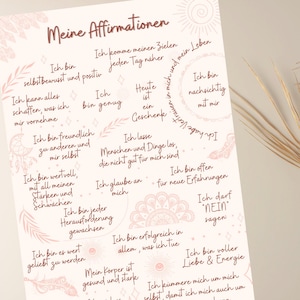 Meine Affirmationen
Ich komme meinen Zielen
jeden Tag näher
Ich bin
selbstbewusst und positiv
Ich habe Vertrauen in mich und mein Leben
Ich kann alles
schaffen, was ich
mir vornehme
Ich
bin genug
Heute
ist
ein
Geschenk
Ich bin
nachsichtig
mit mir
Ich bin freundlich
zu anderen und
mir selbst
Ich lasse
Menschen und Dinge los,
die nicht gut für mich sind
Ich bin wertvoll,
mit all meinen
Stärken und
Schwächen
Ich glaube an
mich
Ich bin offen
für neue Erfahrungen
Ich darf
"NEIN"
sagen
Ich bin jeder
Herausforderung
gewachsen
Ich bin es wert
geliebt zu werden
Ich bin erfolgreich in
allem, was ich tue
Ich bin voller
Liebe & Energie
Mein Körper ist
gesund und stark
Ich kümmere mich um mich
selbst, damit ich mich auch um